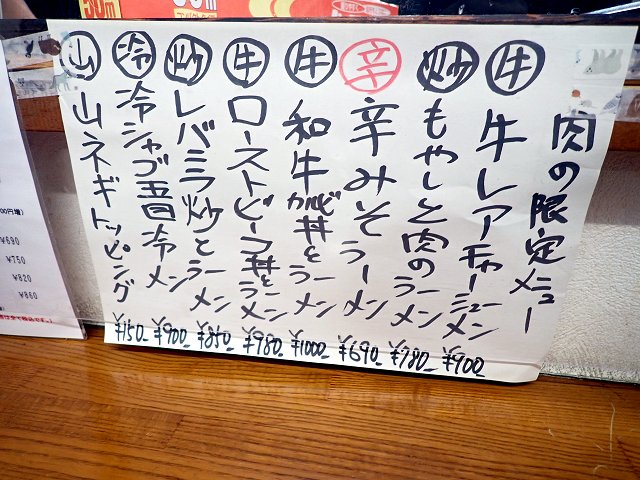 肉の限定メニュー
牛 牛レアチャーシューメン ¥900-
炒 もやしと肉のラーメン ¥780-
辛 辛みそラーメン ¥690-
牛 和牛カルビ丼とラーメン ¥1000-
牛 ローストビーフ丼とラーメン ¥980-
炒 レバミラ炒とラーメン ¥850-
冷 冷シャブ五目冷メン ¥900-
山 山ネギトッピング ¥150-
¥690
¥750
¥820
¥860
30m